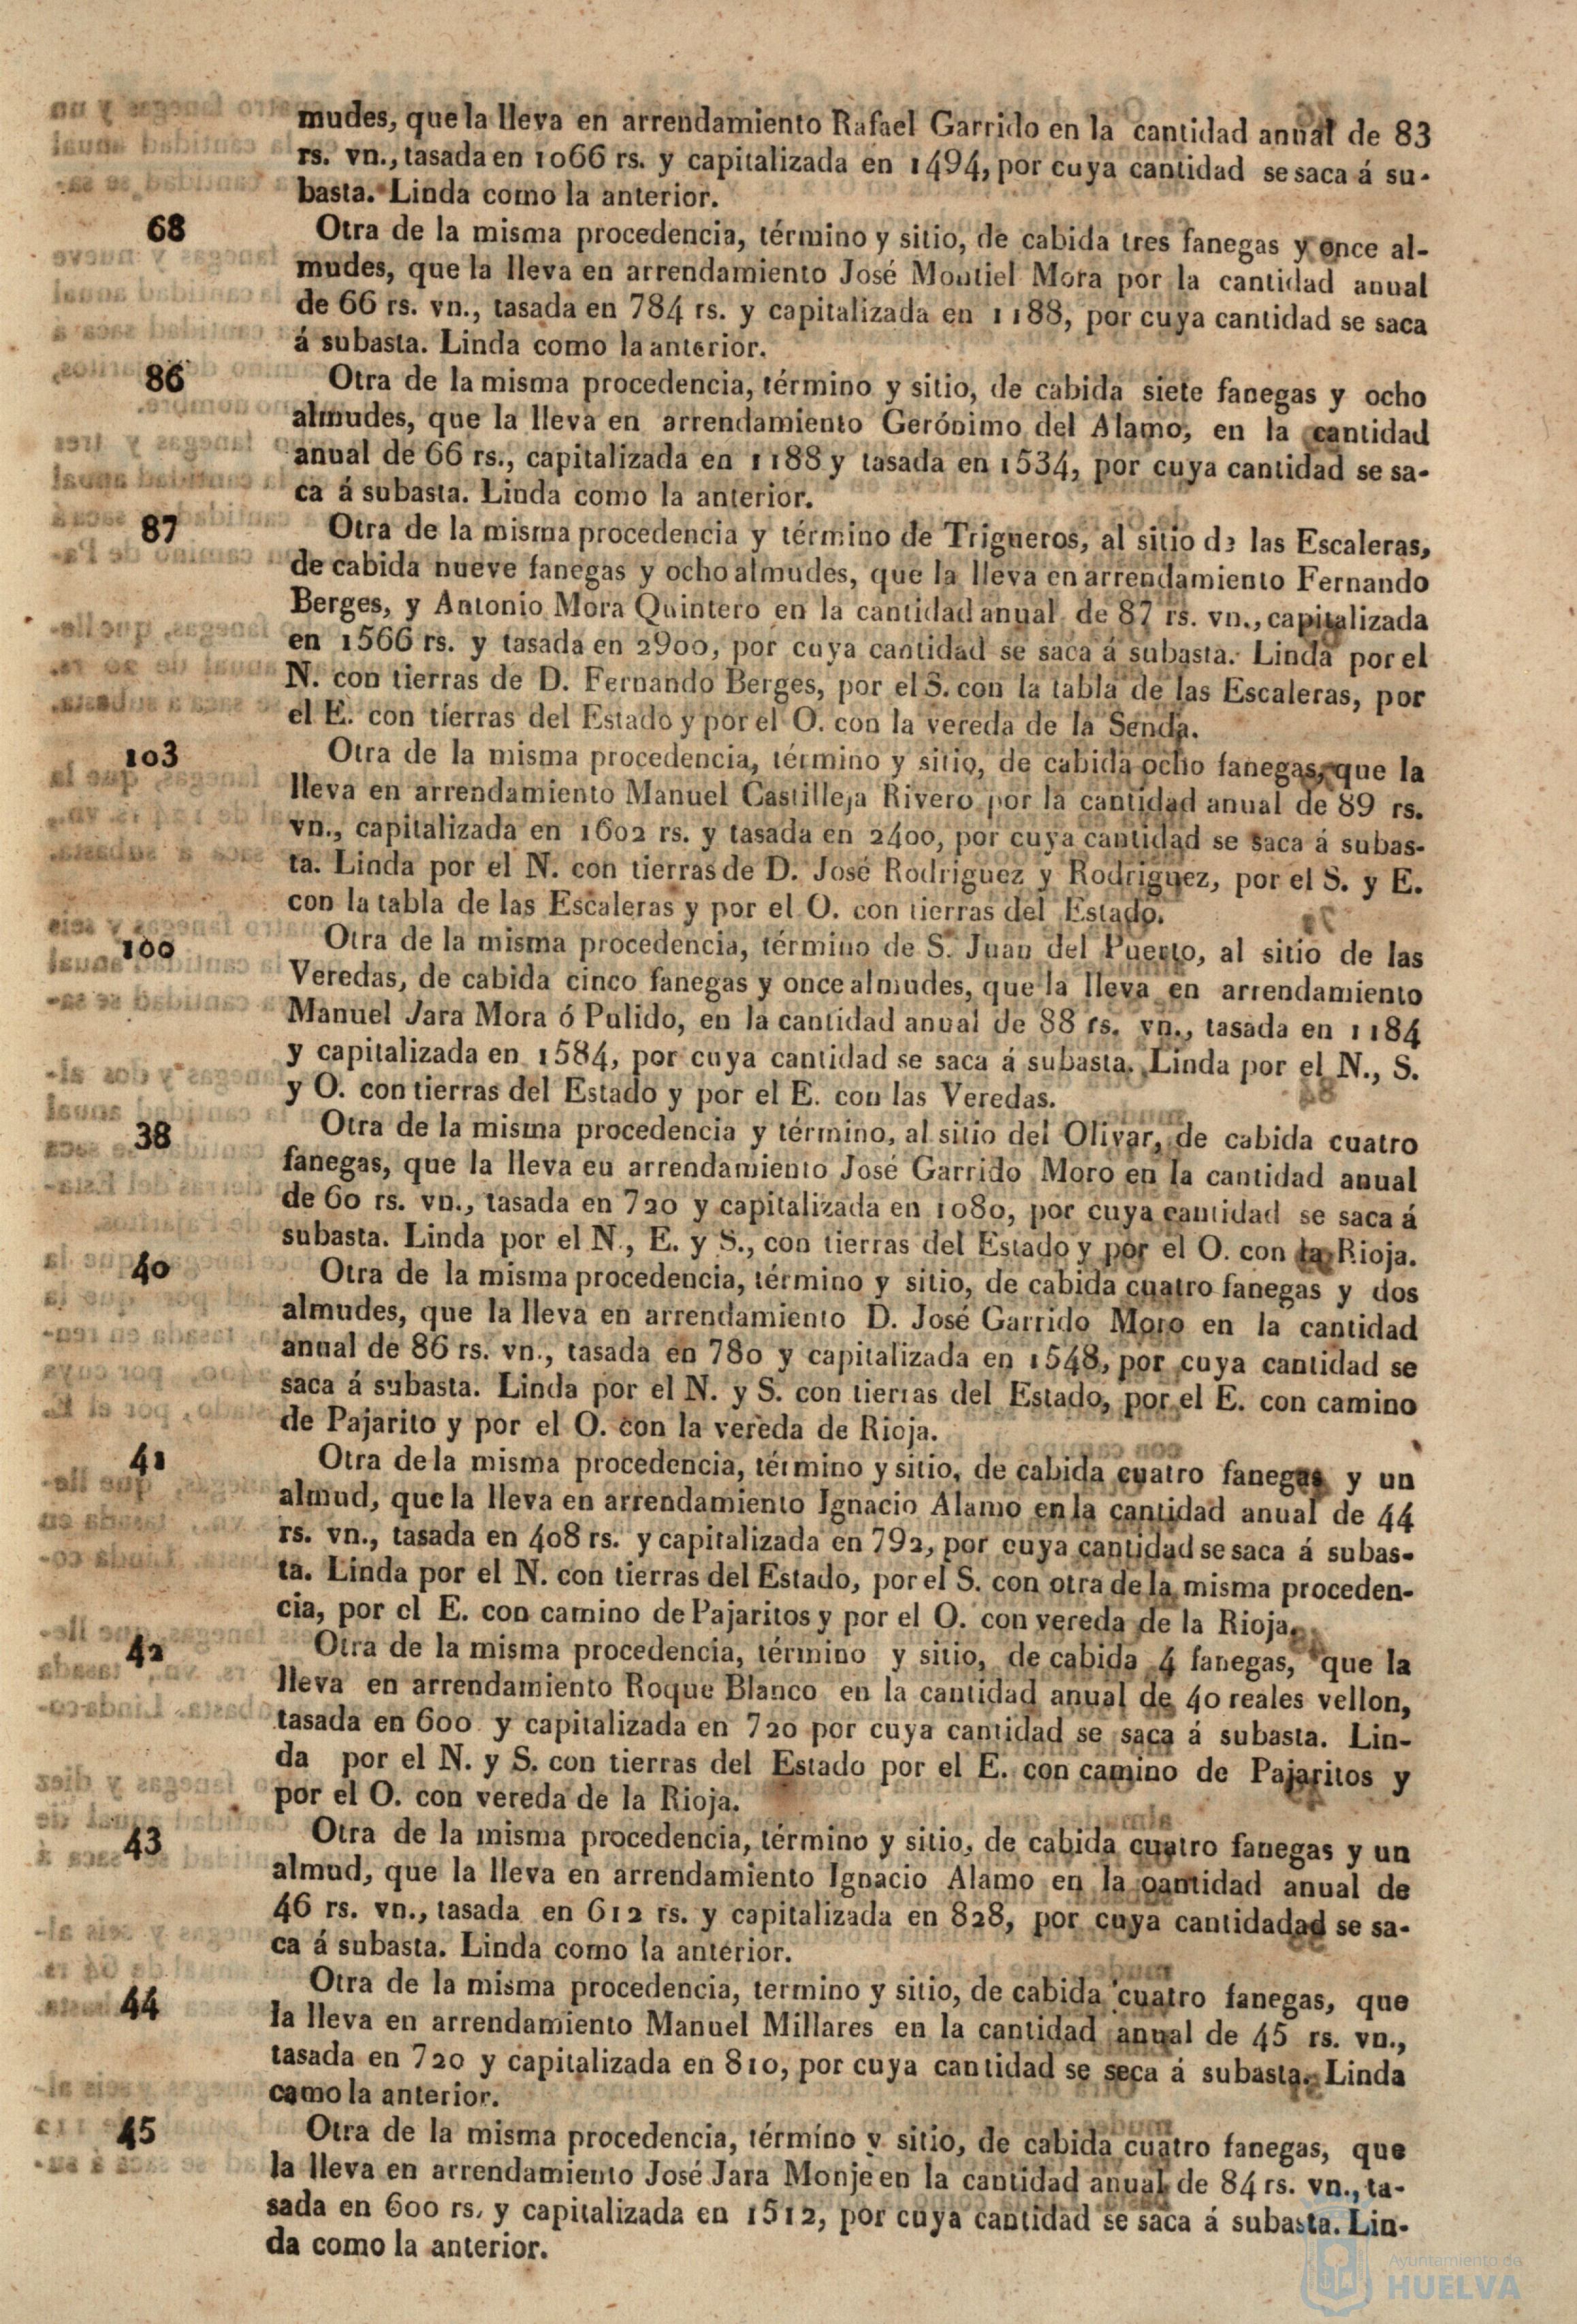 mudes, que la lleva en arrendamiento Rafael Garrido en la cantidad anual de 83
rs. vn., tasada en 1066 rs. y capitalizada en 1494, por cuya cantidad se saca á su-
basta. Linda como la anterior.
68 Otra de la misma procedencia, término y sitio, de cabida tres fanegas y once al-
mudes, que la lleva en arrendamiento José Montiel Mora por la cantidad anual
de 66 rs. vn., tasada en 784 rs. y capitalizada en 1188, por cuya cantidad se saca
á subasta. Linda como la anterior.
86 Otra de la misma procedencia, término y sitio, de cabida siete fanegas y ocho
almudes, que la lleva en arrendamiento Gerónimo del Alamo, en la cantidad
anual de 66 rs., capitalizada en 1188 y tasada en 1534, por cuya cantidad se sa-
ca á subasta. Linda como la anterior.
87 Otra de la misma procedencia y término de Trigueros, al sitio de las Escaleras,
de cabida nueve fanegas y ocho almudes, que la lleva en arrendamiento Fernando
Berges, y Antonio Mora Quintero en la cantidad anual de 87 rs. vn., capitalizada
en 1566 rs. y tasada en 2900, por cuya cantidad se saca á subasta. Linda por el
N. con tierras de D. Fernando Berges, por el S. con la tabla de las Escaleras, por
el E. con tierras del Estado y por el O. con la vereda de la Senda.
103 Otra de la misma procedencia, término y sitio, de cabida ocho fanegas, que la
lleva en arrendamiento Manuel Castilleja Rivero por la cantidad anual de 89 rs.
vn., capitalizada en 1602 rs. y tasada en 2400, por cuya cantidad se saca á subas-
ta. Linda por el N. con tierras de D. José Rodriguez y Rodriguez, por el S. y E.
con la tabla de las Escaleras y por el O. con tierras del Estado.
100 Otra de la misma procedencia, término de S. Juan del Puerto, al sitio de las
Veredas, de cabida cinco fanegas y once almudes, que la lleva en arrendamiento
Manuel Jara Mora ó Pulido, en la cantidad anual de 88 rs. vn., tasada en 1184
y capitalizada en 1584, por cuya cantidad se saca á subasta. Linda por el N., S.
y O. con tierras del Estado y por el E. con las Veredas.
38 Otra de la misma procedencia y término, al sitio del Olivar, de cabida cuatro
fanegas, que la lleva en arrendamiento José Garrido Moro en la cantidad anual
de 60 rs. vn., tasada en 720 y capitalizada en 1080, por cuya cantidad se saca á
subasta. Linda por el N., E. y S., con tierras del Estado y por el O. con la Rioja.
40 Otra de la misma procedencia, término y sitio, de cabida cuatro fanegas y dos
almudes, que la lleva en arrendamiento D. José Garrido Moro en la cantidad
anual de 86 rs. vn., tasada en 780 y capitalizada en 1548, por cuya cantidad se
saca á subasta. Linda por el N. y S. con tierras del Estado, por el E. con camino
de Pajarito y por el O. con la vereda de Rioja.
41 Otra de la misma procedencia, término y sitio, de cabida cuatro fanegas y un
almud, que la lleva en arrendamiento Ignacio Alamo en la cantidad anual de 44
rs. vn., tasada en 408 rs. y capitalizada en 792, por cuya cantidad se saca á subas-
ta. Linda por el N. con tierras del Estado, por el S. con otra de la misma proceden-
cia, por el E. con camino de Pajaritos y por el O. con vereda de la Rioja.
42 Otra de la misma procedencia, término y sitio, de cabida 4 fanegas, que la
lleva en arrendamiento Roque Blanco en la cantidad anual de 40 reales vellon,
tasada en 600 y capitalizada en 720 por cuya cantidad se saca á subasta. Lin-
da por el N. y S. con tierras del Estado por el E. con camino de Pajaritos y
por el O. con vereda de la Rioja.
43 Otra de la misma procedencia, término y sitio, de cabida cuatro fanegas y un
almud, que la lleva en arrendamiento Ignacio Alamo en la cantidad anual de
46 rs. vn., tasada en 612 rs. y capitalizada en 828, por cuya cantidadad se sa-
ca á subasta. Linda como la anterior.
44 Otra de la misma procedencia, termino y sitio, de cabida cuatro fanegas, que
la lleva en arrendamiento Manuel Millares en la cantidad anual de 45 rs. vn.,
tasada en 720 y capitalizada en 810, por cuya cantidad se seca á subasta. Linda
camo la anterior.
45 Otra de la misma procedencia, término y sitio, de cabida cuatro fanegas, que
la lleva en arrendamiento José Jara Monje en la cantidad anual de 84 rs. vn., ta-
sada en 600 rs. y capitalizada en 1512, por cuya cantidad se saca á subasta. Lin-
da como la anterior.
Ayuntamiento de
HUELVA